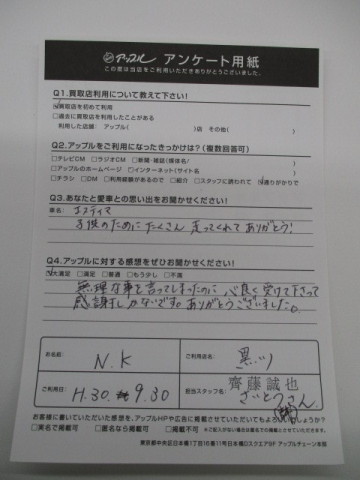 アップル アンケート用紙
この度は当店をご利用いただきありがとうございました。
Q1.買取店利用について教えて下さい!
☑買取店を初めて利用
□過去に買取店を利用したことがある
利用した店舗: アップル( )店 その他( )
Q2.アップルをご利用になったきっかけは?(複数回答可)
□テレビCM □ラジオCM □新聞・雑誌(媒体名/ )
□アップルのホームページ □インターネット(サイト名 )
□チラシ □DM □利用経験があるので □紹介 □スタッフに誘われて ☑通りがかりで
Q3.あなたと愛車との思い出をお聞かせください!
車名: エスティマ
子供のために たくさん 走ってくれて ありがとう!
Q4.アップルに対する感想をぜひお聞かせください!
☑大満足 □満足 □普通 □もう少し □不満
無理な事を言ってしまったのに 心良く 受けて下さって
感謝しかないです。ありがとうございました。
お名前: N.K
ご利用店名: 黒川
ご利用日: H.30. 9.30
担当スタッフ名: 齊藤誠也
さいとうさん
お客様に書いていただいた感想を、アップルHPや広告に掲載させていただいてもよろしいでしょうか?
□実名で掲載可 □匿名なら掲載可 □掲載不可 ※ご記入がない場合は匿名での掲載とさせていただきます。
東京都中央区日本橋1丁目16番11号日本橋Dスクエア8F アップルチェーン本部